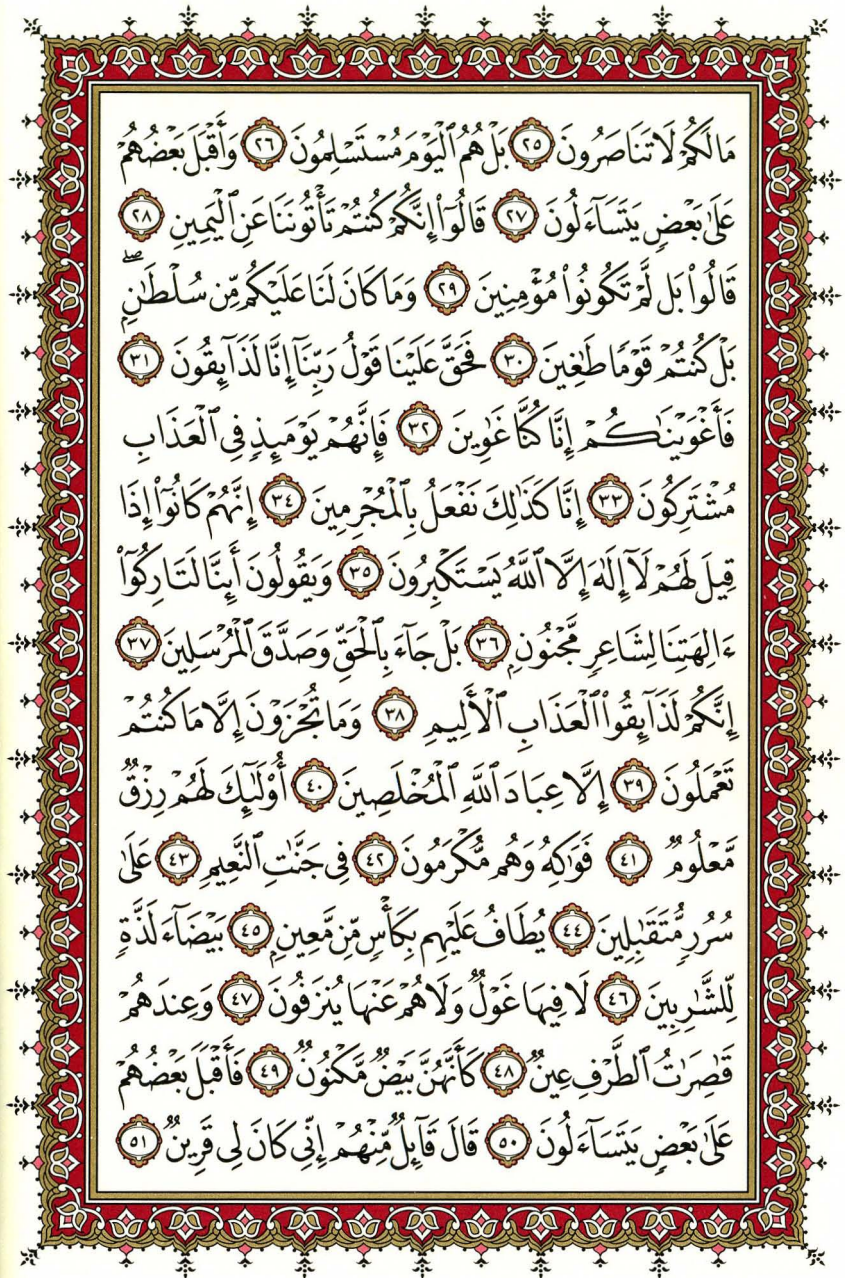 مَا لَكُمْ لَا تَنَاصَرُونَ ٢٥ بَلْ هُمُ ٱلْيَوْمَ مُسْتَسْلِمُونَ ٢٦ وَأَقْبَلَ بَعْضُهُمْ
عَلَىٰ بَعْضٍ يَتَسَآءَلُونَ ٢٧ قَالُوٓا۟ إِنَّكُمْ كُنتُمْ تَأْتُونَنَا عَنِ ٱلْيَمِينِ ٢٨
قَالُوا۟ بَل لَّمْ تَكُونُوا۟ مُؤْمِنِينَ ٢٩ وَمَا كَانَ لَنَا عَلَيْكُم مِّن سُلْطَٰنٍۭ ۖ
بَلْ كُنتُمْ قَوْمًا طَٰغِينَ ٣٠ فَحَقَّ عَلَيْنَا قَوْلُ رَبِّنَآ إِنَّا لَذَآئِقُونَ ٣١
فَأَغْوَيْنَٰكُمْ إِنَّا كُنَّا غَٰوِينَ ٣٢ فَإِنَّهُمْ يَوْمَئِذٍ فِى ٱلْعَذَابِ
مُشْتَرِكُونَ ٣٣ إِنَّا كَذَٰلِكَ نَفْعَلُ بِٱلْمُجْرِمِينَ ٣٤ إِنَّهُمْ كَانُوٓا۟ إِذَا
قِيلَ لَهُمْ لَآ إِلَٰهَ إِلَّا ٱللَّهُ يَسْتَكْبِرُونَ ٣٥ وَيَقُولُونَ أَئِنَّا لَتَارِكُوٓا۟
ءَالِهَتِنَا لِشَاعِرٍ مَّجْنُونٍۭ ٣٦ بَلْ جَآءَ بِٱلْحَقِّ وَصَدَّقَ ٱلْمُرْسَلِينَ ٣٧
إِنَّكُمْ لَذَآئِقُوا۟ ٱلْعَذَابِ ٱلْأَلِيمِ ٣٨ وَمَا تُجْزَوْنَ إِلَّا مَا كُنتُمْ
تَعْمَلُونَ ٣٩ إِلَّا عِبَادَ ٱللَّهِ ٱلْمُخْلَصِينَ ٤٠ أُو۟لَٰٓئِكَ لَهُمْ رِزْقٌ
مَّعْلُومٌ ٤١ فَوَٰكِهُ وَهُم مُّكْرَمُونَ ٤٢ فِى جَنَّٰتِ ٱلنَّعِيمِ ٤٣ عَلَىٰ
سُرُرٍ مُّتَقَٰبِلِينَ ٤٤ يُطَافُ عَلَيْهِم بِكَأْسٍ مِّن مَّعِينٍۭ ٤٥ بَيْضَآءَ لَذَّةٍ
لِّلشَّٰرِبِينَ ٤٦ لَا فِيهَا غَوْلٌ وَلَا هُمْ عَنْهَا يُنزَفُونَ ٤٧ وَعِندَهُمْ
قَٰصِرَٰتُ ٱلطَّرْفِ عِينٌ ٤٨ كَأَنَّهُنَّ بَيْضٌ مَّكْنُونٌ ٤٩ فَأَقْبَلَ بَعْضُهُمْ
عَلَىٰ بَعْضٍ يَتَسَآءَلُونَ ٥٠ قَالَ قَآئِلٌ مِّنْهُمْ إِنِّى كَانَ لِى قَرِينٌ ٥١